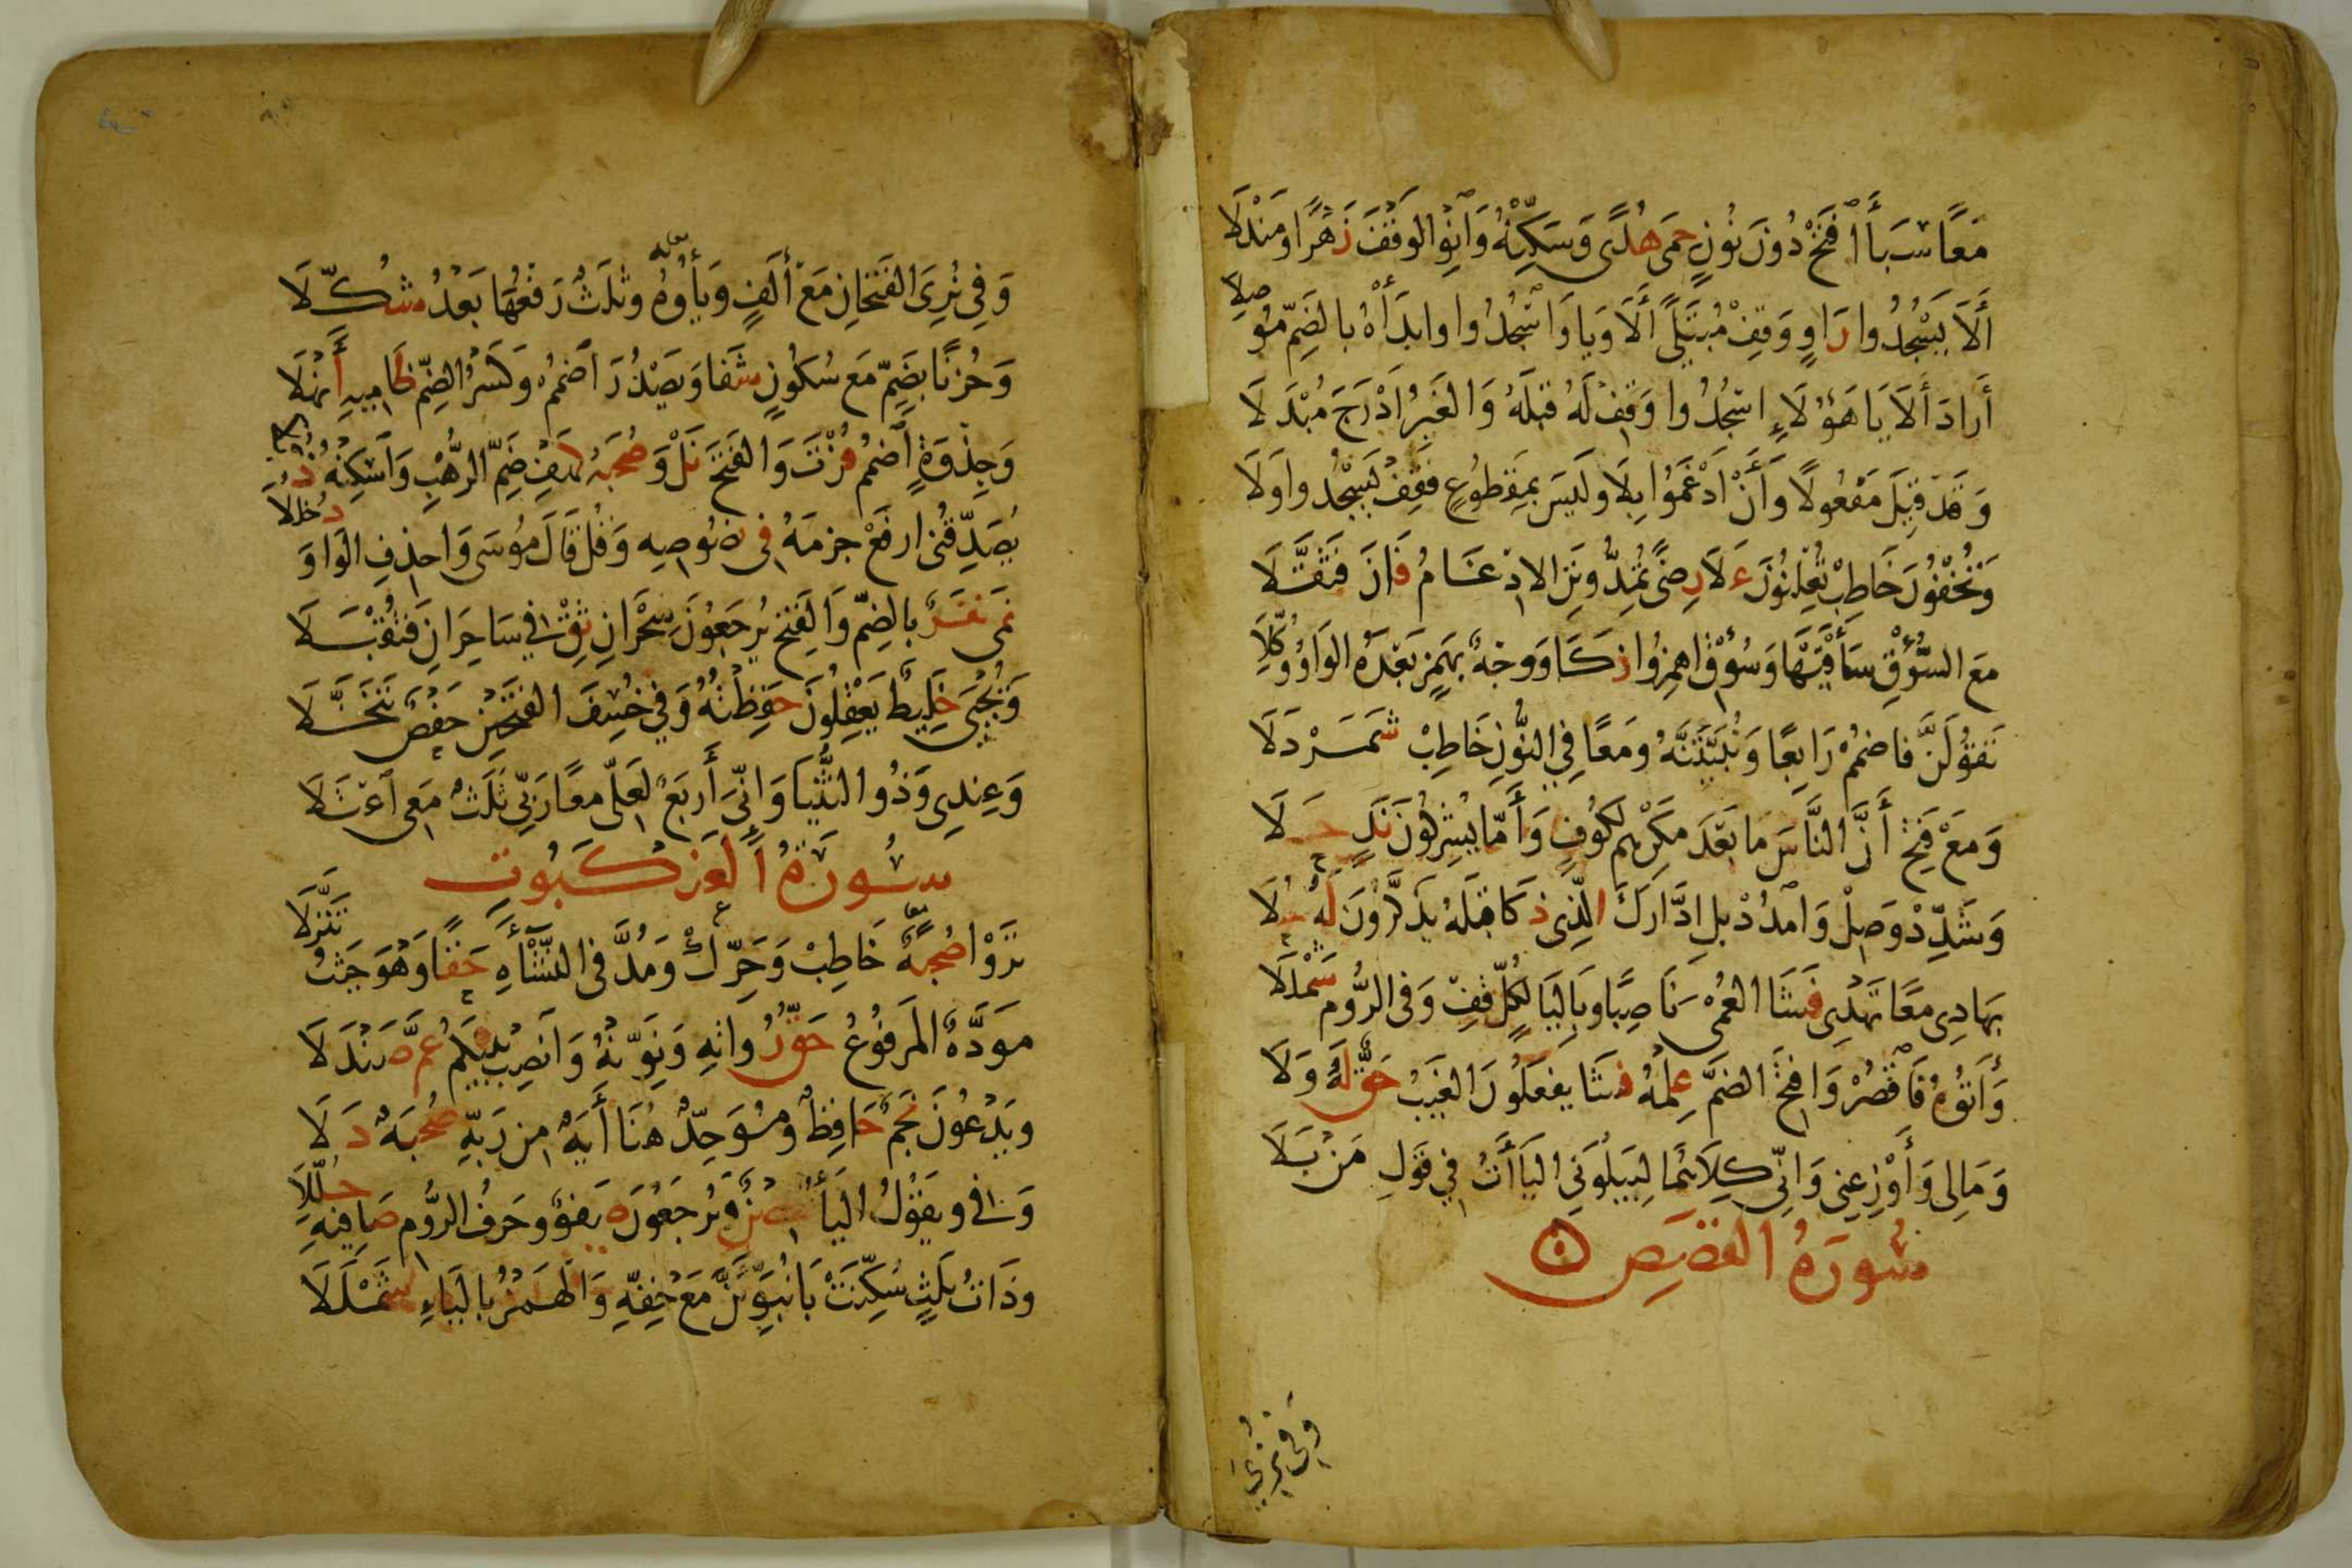 مَعًا سَبَأَ افْتَحْ دُونَ نُونٍ حِمَى هُدًى وَسَكِّنْهُ وَانْوِ الْوَقْفَ زُهْرًا وَمَنْدَلَا
أَلَا يَسْجُدُوا رَاوٍ وَقِفْ مُبْتَلًى أَلَا وَيَا وَاسْجُدُوا وَابْدَأْهُ بِالضَّمِّ مُوصِلَا
أَرَادَ أَلَا يَا هَؤُلَاءِ اسْجُدُوا وَقِفْ لَهُ قَبْلَهُ وَالْغَيْرُ أَدْرَجَ مُبْدِلَا
وَقَدْ قِيلَ مَفْعُولًا وَأَنْ أَدْغَمُوا بِلَا وَلَيْسَ بِمَقْطُوعٍ فَقِفْ يَسْجُدُوا وَلَا
وَتُخْفُونَ خَاطِبْ تُعْلِنُونَ عَلَى رِضًى تُمِدُّونَنِ الْإِدْغَامُ فَازَ فَثَقَّلَا
مَعَ السُّوقِ سَأْقَيْهَا وَسُوقٍ اهْمِزُوا زَكَا وَوَجْهٌ بِهَمْزٍ بَعْدَهُ الْوَاوُ وُكِّلَا
تَقُولَنَّ فَاضْمُمْ رَابِعًا وَنُبَيِّتَنَّهُ وَمَعًا فِي النُّونِ خَاطِبْ شَمَرْدَلَا
وَمَعْ فَتْحِ أَنَّ النَّاسَ مَا بَعْدَ مَكْرِهِمْ لِكُوفٍ وَأَمَّا يُشْرِكُونَ نَدٍ حَلَا
وَشَدِّدْ وَصِلْ وَامْدُدْ بَلِ ادَّارَكَ الَّذِي ذَكَا قَبْلَهُ يَذَّكَّرُونَ لَهُ حُلَا
بِهَادِي مَعًا تَهْدِي فَشَا الْعُمْيِ نَاصِبًا وَبِالْيَا لِكُلٍّ قِفْ وَفِي الرُّومِ شَمْلَلَا
وَآتُوهُ فَاقْصُرْ وَافْتَحِ الضَّمَّ عِلْمُهُ فَشَا يَفْعَلُونَ الْغَيْبُ حَقٌّ لَهُ وَلَا
وَمَالِي وَأَوْزِعْنِي وَإِنِّي كِلَاهُمَا لِيَبْلُوَنِي الْيَاءَاتُ فِي قَوْلِ مَنْ بَلَا
سُورَةُ الْقَصَصِ
وَفِي نُرِيَ
وَفِي نُرِيَ الْفَتْحَانِ مَعْ أَلِفٍ وَيَائِهِ وَثَلَاثٌ رَفْعُهَا بَعْدُ شُكِّلَا
وَحُزْنًا بِضَمٍّ مَعْ سُكُونٍ شَفَا وَيَصْدُرَ اضْمُمْ وَكَسْرُ الضَّمِّ ظَامِيهِ أَنْهَلَا
وَجِذْوَةٍ اضْمُمْ فُزْتَ وَالْفَتْحَ نَلْ وَصُحْبَةٌ كَهْفُ ضَمِّ الرَّهْبِ وَاسْكِنْهُ ذُبَّلَا
يُصَدِّقُنِي ارْفَعْ جَزْمَهُ فِي نُصُوصِهِ وَقُلْ قَالَ مُوسَى وَاحْذِفِ الْوَاوَ دُخْلُلَا
نَمَى نَفَرٌ بِالضَّمِّ وَالْفَتْحِ يُرْجَعُونَ سِحْرَانِ ثِقْ فِي سَاحِرَانِ فَتُقْبَلَا
وَيُجْبَى خَلِيطٌ يَعْقِلُونَ حَفِظْتُهُ وَفِي خُسِفَ الْفَتْحَيْنِ حَفْصٌ تَنَخَّلَا
وَعِنْدِي وَذُو الثُّنْيَا وَإِنِّيَ أَرْبَعٌ لَعَلِّي مَعًا رَبِّي ثَلَاثٌ مَعِي اعْتَلَا
سُورَةُ الْعَنْكَبُوتِ
تَرَوْا صُحْبَةٌ خَاطِبْ وَحَرِّكْ وَمُدَّ فِي النَّشْأَةِ حَقًّا وَهُوَ حَيْثُ تَنَزَّلَا
مَوَدَّةٌ الْمَرْفُوعُ حَقُّ رُوَاتِهِ وَنَوِّنْهُ وَانْصِبْ بَيْنَكُمْ عَمَّ صَنْدَلَا
وَيَدْعُونَ نَجْمٌ حَافِظٌ وَمُوَحِّدٌ هُنَا آيَةٌ مِنْ رَبِّهِ صُحْبَةٌ دَلَا
وَفِي وَيَقُولُ الْيَاءُ حِصْنٌ وَيُرْجَعُونَ صَفْوٌ وَحَرْفُ الرُّومِ صَافِيهِ حُلِّلَا
وَذَاتُ ثَلَاثٍ سُكِّنَتْ بَا نُبَوِّئَنَّ مَعْ خِفِّهِ وَالْهَمْزُ بِالْيَاءِ شَمْلَلَا